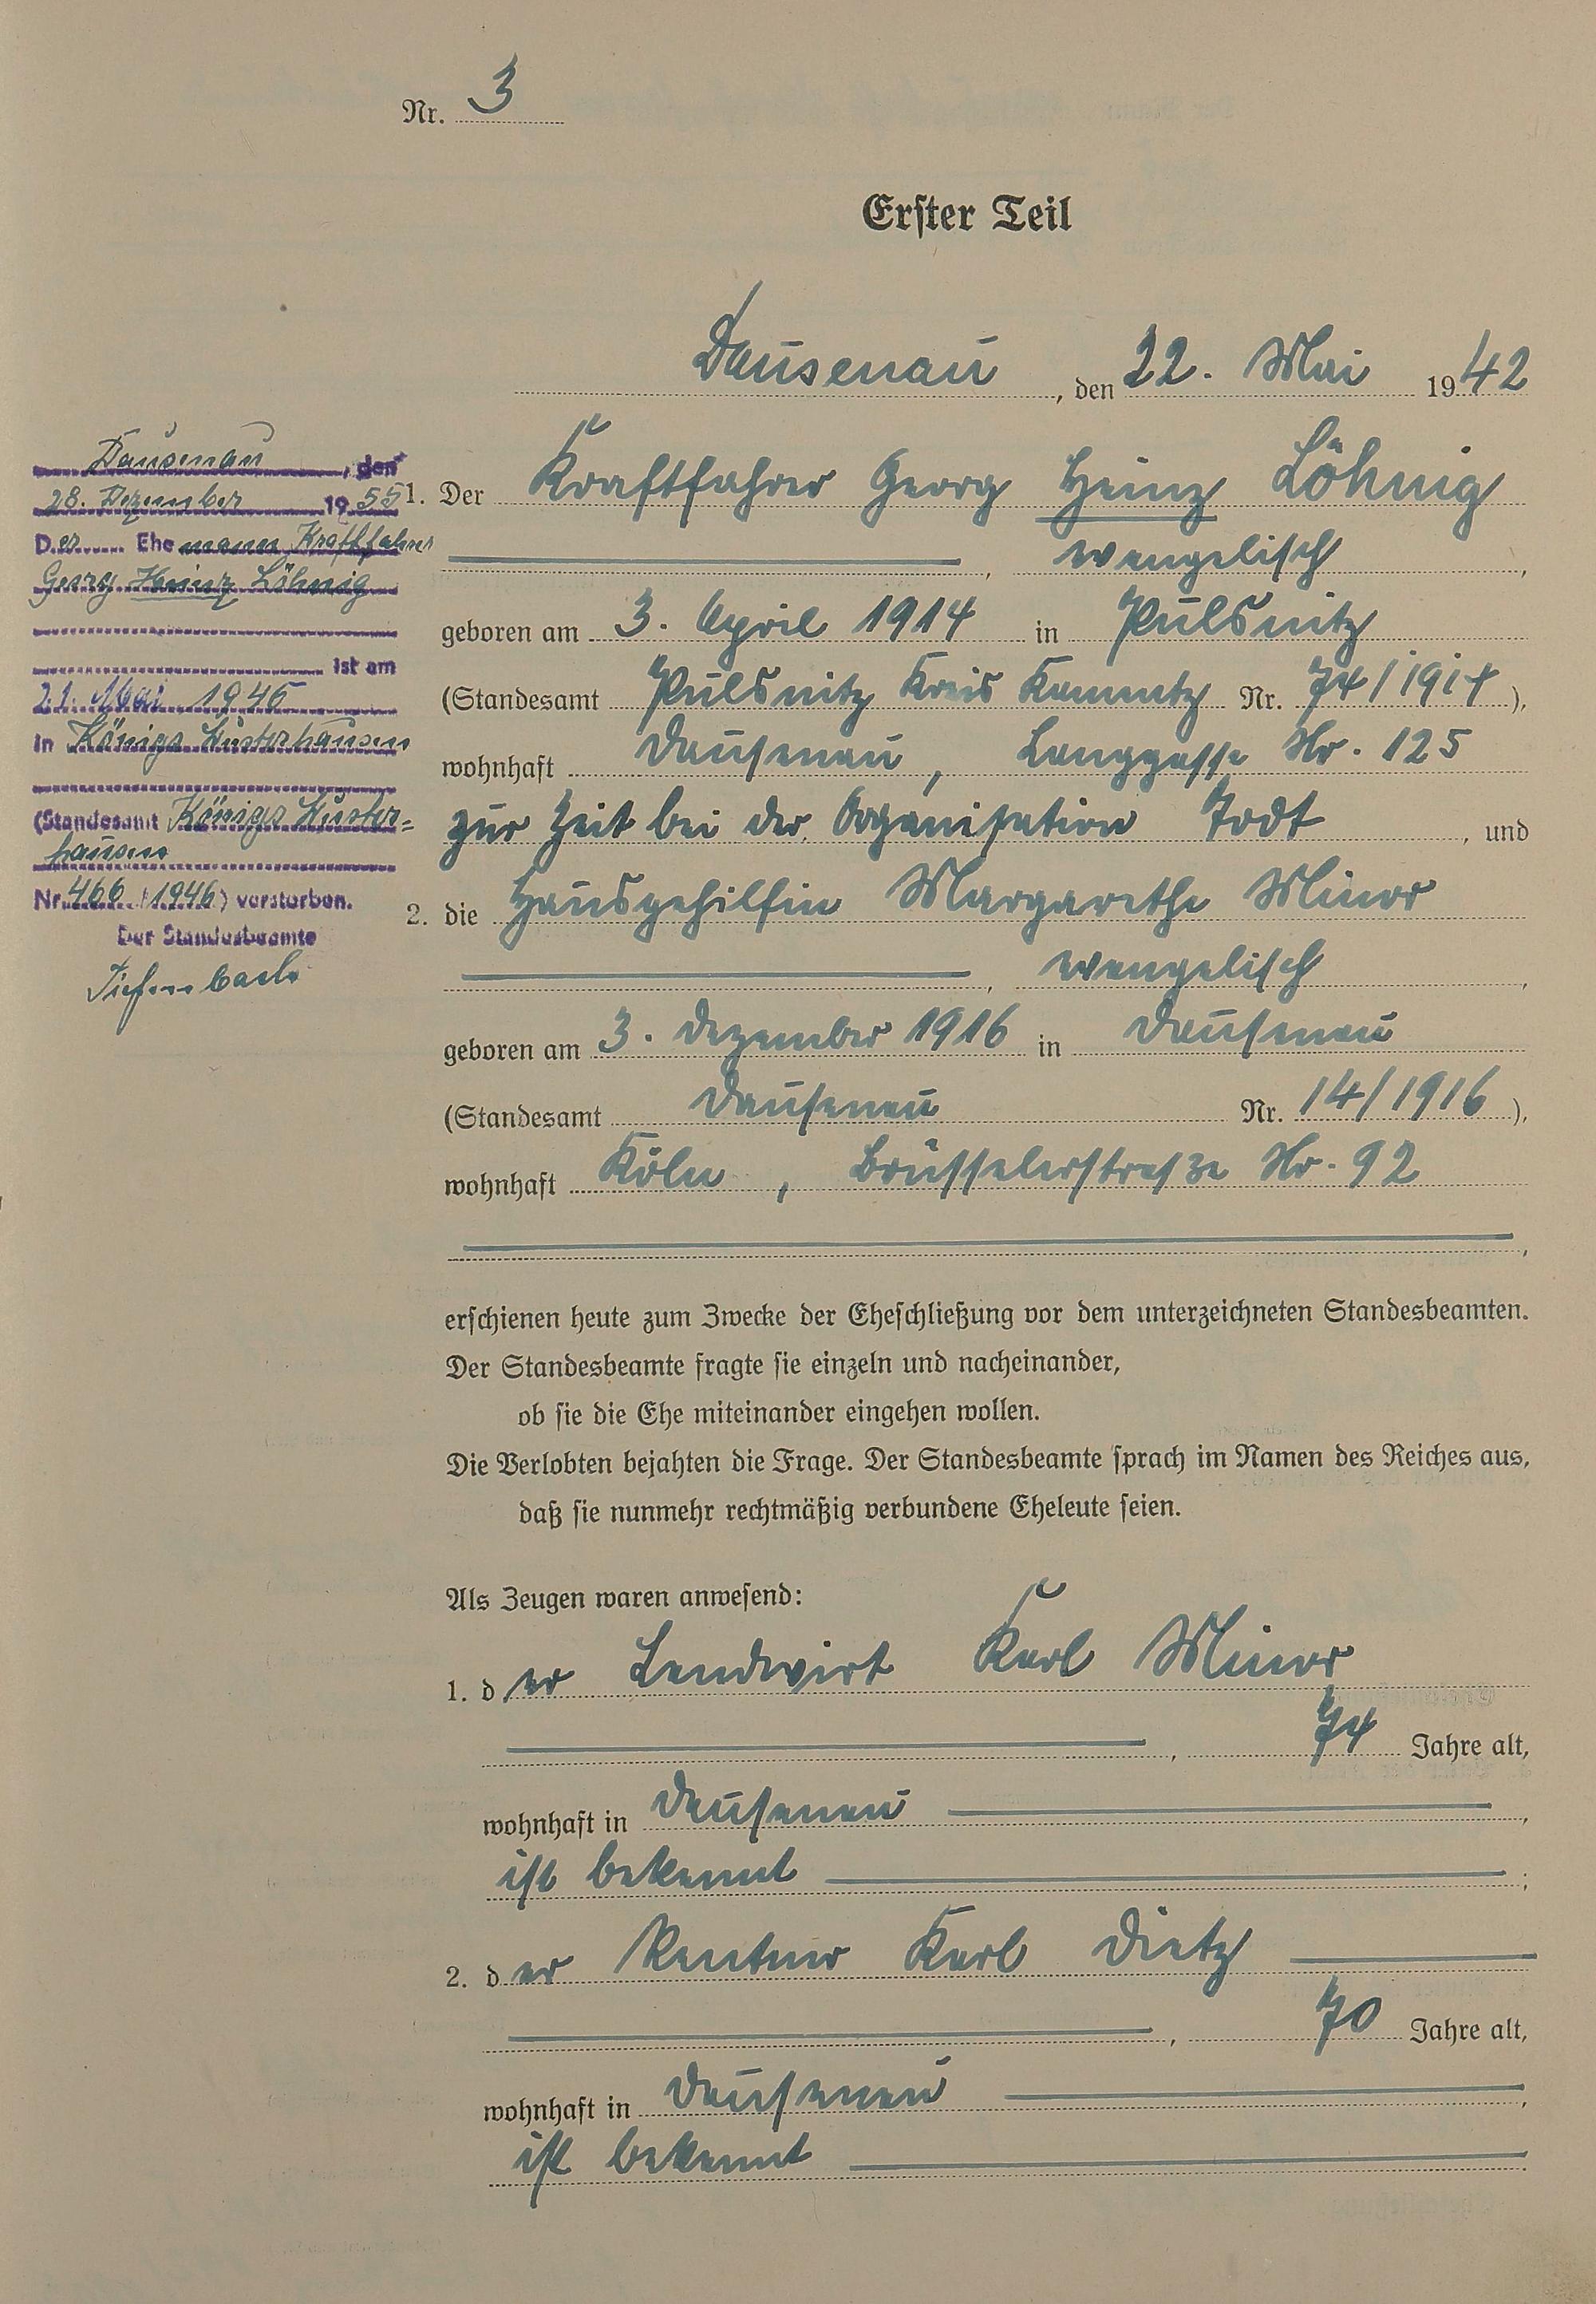 Nr. 3
Erster Teil
Dausenau, den 22. Mai 1942
1. Der Kraftfahrer Georg Heinz Löhnig
, evangelisch,
geboren am 3. April 1914 in Pulsnitz
(Standesamt Pulsnitz Kreis Kamentz Nr. 74/1914),
wohnhaft Dausenau, Langgasse Nr. 125
zur Zeit bei der Organisation Todt, und
2. die Hausgehilfin Margarethe Minor
, evangelisch,
geboren am 3. Dezember 1916 in Dausenau
(Standesamt Dausenau Nr. 14/1916),
wohnhaft Köln, Brüsselerstraße Nr. 92
,
erschienen heute zum Zwecke der Eheschließung vor dem unterzeichneten Standesbeamten.
Der Standesbeamte fragte sie einzeln und nacheinander,
ob sie die Ehe miteinander eingehen wollen.
Die Verlobten bejahten die Frage. Der Standesbeamte sprach im Namen des Reiches aus,
daß sie nunmehr rechtmäßig verbundene Eheleute seien.
Als Zeugen waren anwesend:
1. der Landwirt Karl Minor
, 74 Jahre alt,
wohnhaft in Dausenau,
ist bekannt;
2. der Rentner Karl Dietz
, 70 Jahre alt,
wohnhaft in Dausenau,
ist bekannt.
Dausenau, den
28. Dezember 1955
Der Ehemann Kraftfahrer
Georg Heinz Löhnig
ist am
21. Mai 1946
in Königs Wusterhausen
(Standesamt Königs Wuster=
hausen
Nr. 466/1946) verstorben.
Der Standesbeamte
Tiefenbach